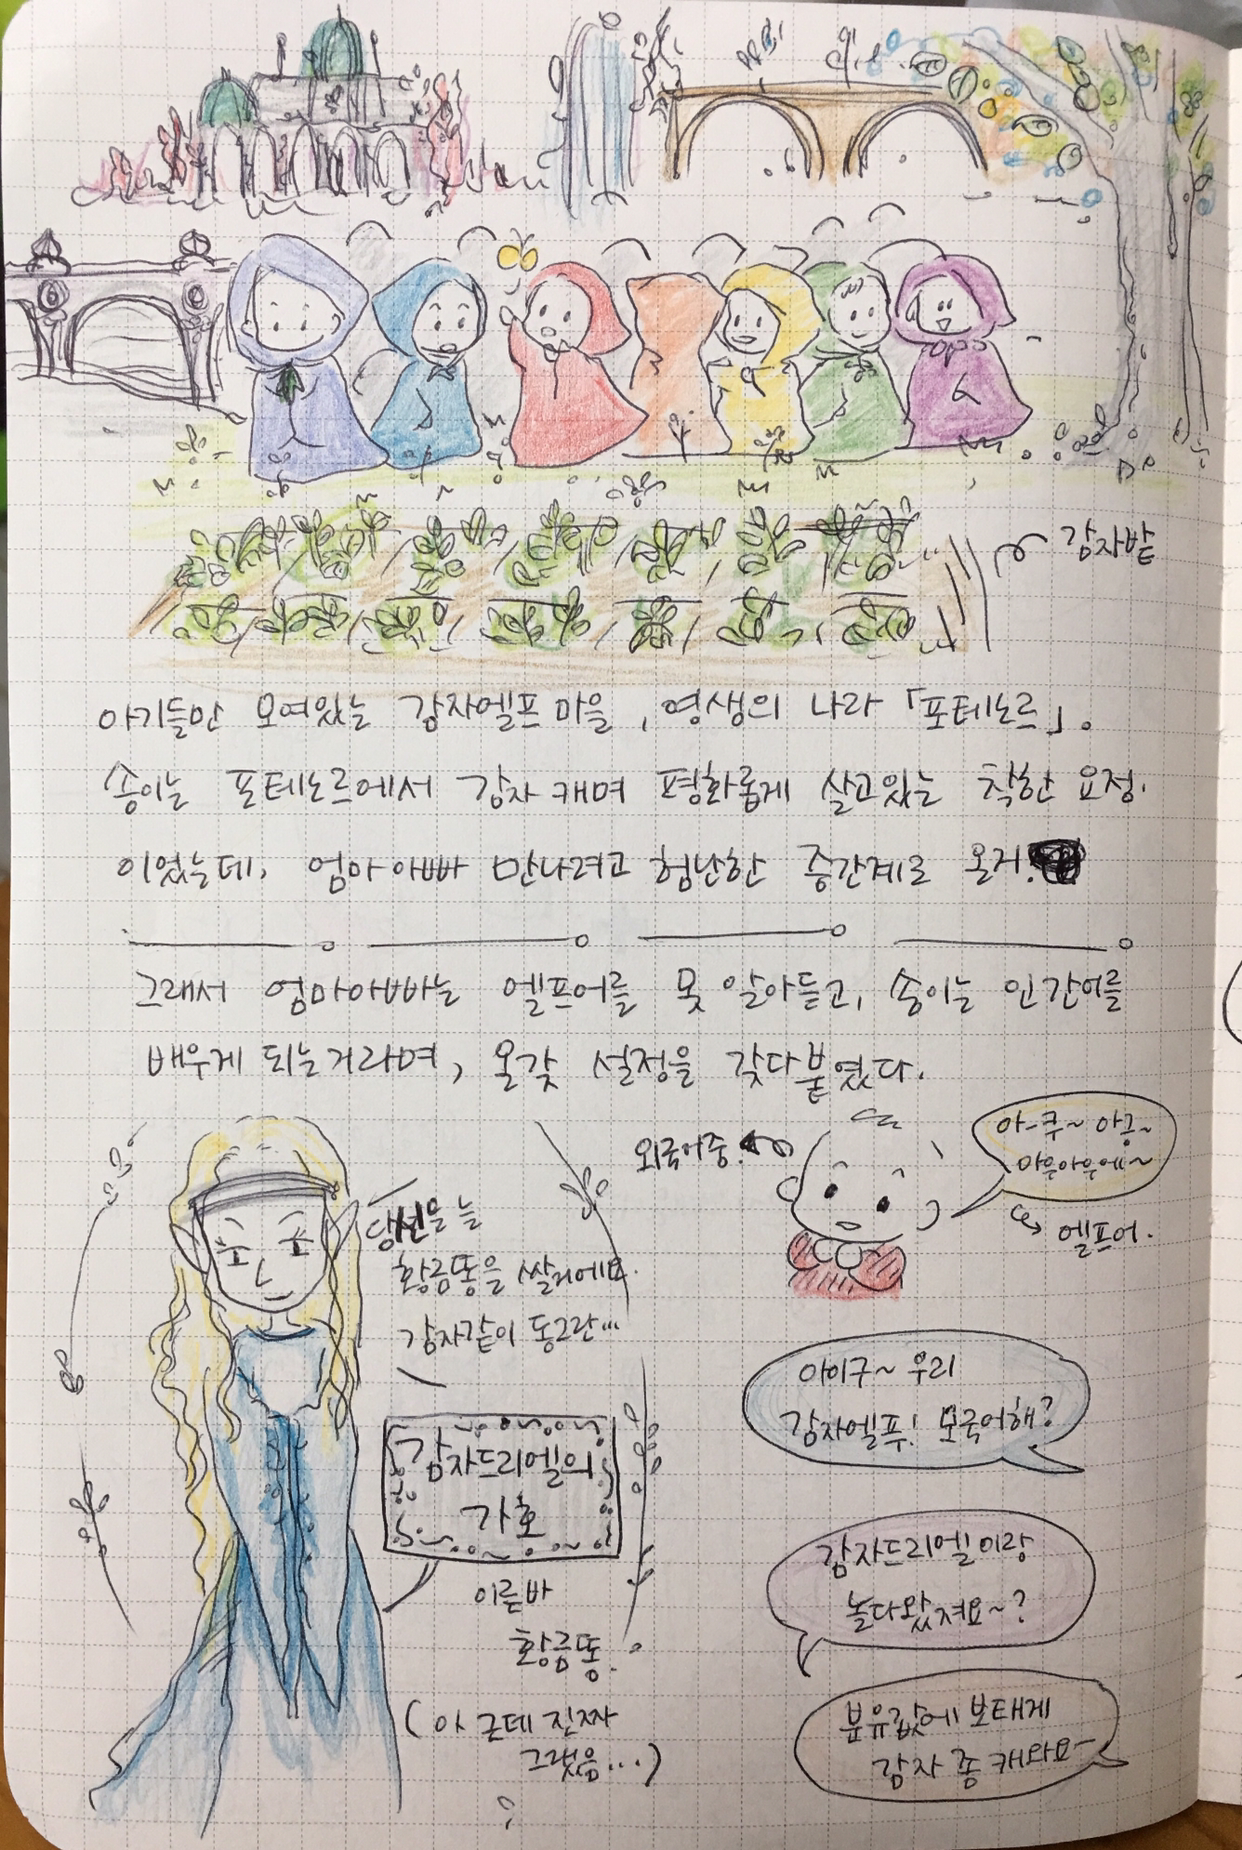 감자밭
아기들만 모여있는 감자엘프 마을, 영생의 나라 「포테노르」.
송이는 포테노르에서 감자 캐며 평화롭게 살고있는 착한 요정.
이었는데, 엄마아빠 만나려고 험난한 중간계로 온거.
그래서 엄마아빠는 엘프어를 못 알아듣고, 송이는 인간어를
배우게 되는거라며, 온갖 설정을 갖다붙였다.
당신은 늘
황금똥을 쌀거에요.
감자같이 동그란...
감자드리엘의
가호
이른바
황금똥.
(아 근데 진짜
그랬음...)
외국어중.
아-쿠~ 아긍~
아웅아웅에~
엘프어.
아이구~ 우리
감자엘푸! 모국어해?
감자드리엘이랑
놀다왔져요~?
분유값에 보태게
감자 좀 캐와요-